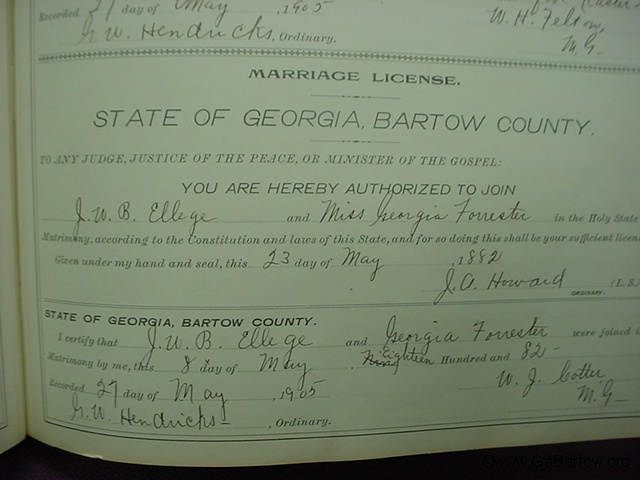 Recorded 27 day of May , 1905
W. H. Felton,
G. W. Hendricks, Ordinary.
M. G.
MARRIAGE LICENSE.
STATE OF GEORGIA, BARTOW COUNTY.
TO ANY JUDGE, JUSTICE OF THE PEACE, OR MINISTER OF THE GOSPEL:
YOU ARE HEREBY AUTHORIZED TO JOIN
J. W. B. Ellege and Miss Georgia Forrester in the Holy State
Matrimony, according to the Constitution and laws of this State, and for so doing this shall be your sufficient licen
Given under my hand and seal, this 23 day of May , 1882
J. A. Howard (L. S.)
ORDINARY.
STATE OF GEORGIA, BARTOW COUNTY.
I certify that J. W. B. Ellege and Georgia Forrester were joined i
Matrimony by me, this 8 day of May , Eighteen Hundred and 82
Recorded 27 day of May , 1905
W. J. Cotter
G. W. Hendricks , Ordinary.
M. G.
©www.GaBartow.org